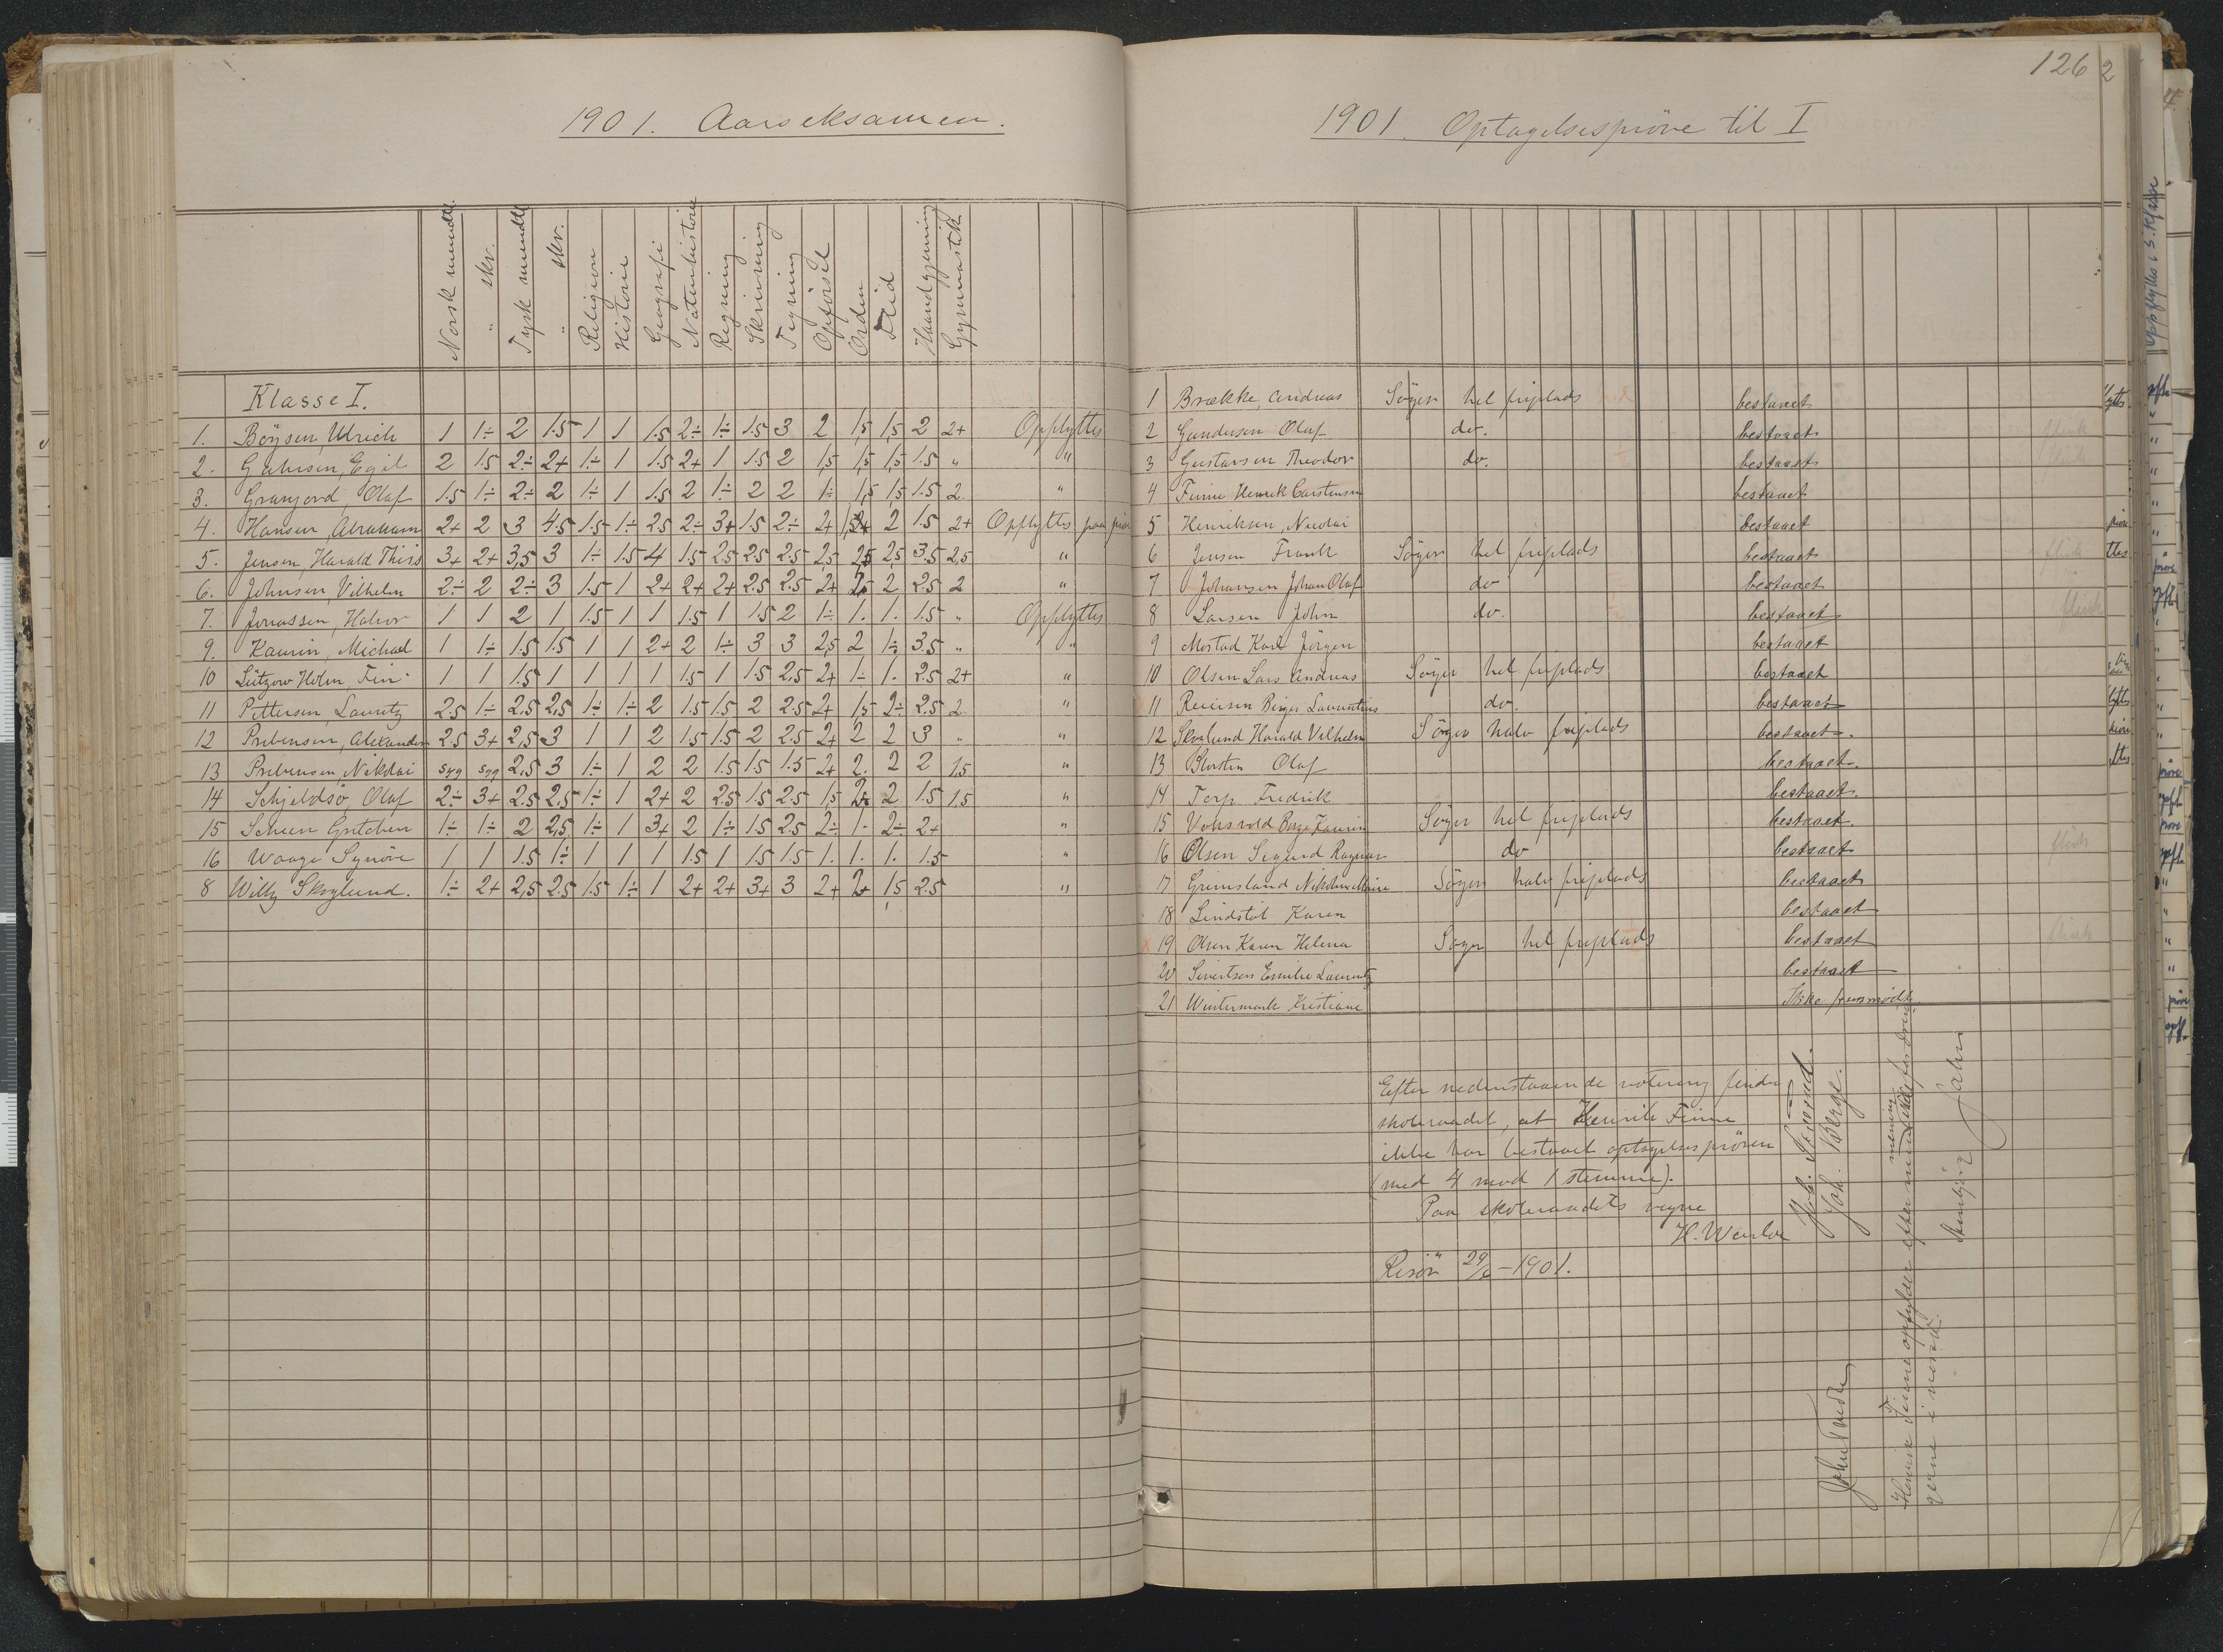 1901. Aarseksamen.
Norsk mundtl. " skr. Tysk mundtl " skr. Religion Historie Geografi Naturhistorie Regning Skrivning Tegning Opførsel Orden Flid Haandgjerning Gymnastik
Klasse I.
1. Böysen, Ulrich 1 1÷ 2 1.5 1 1 1.5 2÷ 1÷ 1.5 3 2 1,5 1,5 2 2+ Opflyttes
2. Egil 2 1.5 2÷ 2+ 1÷ 1 1.5 2+ 1 1.5 2 1,5 1,5 1,5 1.5 " "
3. Olaf 1.5 1÷ 2÷ 2 1÷ 1 1.5 2 1÷ 2 2 1÷ 1,5 1,5 1.5 2. "
4. Hansen, Abraham 2+ 2 3 4.5 1.5 1÷ 2.5 2÷ 3+ 1.5 2÷ 2+ 2 1.5 2+ Opflyttes paa prøve
5. Jensen, Harald Thiis 3+ 2+ 3,5 3 1÷ 1.5 4 1.5 2.5 2.5 2.5 2,5 2,5 2,5 3.5 2,5 "
6. Johnsen, Vilhelm 2÷ 2 2÷ 3 1.5 1 2+ 2+ 2+ 2.5 2.5 2+ 2 2.5 2 "
7. Jonassen, Halvor 1 1 2 1 1.5 1 1 1.5 1 1.5 2 1÷ 1. 1. 1.5 " Opflyttes
9. Kaurin, Michael 1 1÷ 1.5 1.5 1 1 2+ 2 1÷ 3 3 2,5 2 1÷ 3.5 " "
10 Lützow Holm, Fin 1 1 1.5 1 1 1 1 1.5 1 1.5 2,5 2+ 1÷ 1. 2.5 2+ "
11 Pettersen, Lauritz 2.5 1÷ 2,5 2,5 1÷ 1÷ 2 1.5 1.5 2 2.5 2+ 1,5 2÷ 2.5 2. "
12 Prebensen, Alexander 2.5 3+ 2,5 3 1 1 2 1.5 1.5 2 2.5 2+ 2 2 3 " "
13 Prebensen, Nikolai syg syg 2,5 3 1÷ 1 2 2 1.5 1.5 1.5 2+ 2. 2 2 1,5 "
14 Schjeldsø, Olaf 2÷ 3+ 2.5 2,5 1÷ 1 2+ 2 2.5 1.5 2.5 1,5 2 1.5 1.5 "
15 Scheen Gretchen 1÷ 1÷ 2 2,5 1÷ 1 3+ 2 1÷ 1.5 2.5 2÷ 1. 2÷ 2+ "
16 Waage Synøve 1 1 1.5 1÷ 1 1 1 1.5 1 1.5 1.5 1. 1. 1. 1.5 "
8 Willy Skoglund. 1÷ 2+ 2,5 2.5 1.5 1÷ 1 2+ 2+ 3+ 3 2+ 2+ 1,5 2.5 "
126 2
1901. Optagelsesprøve til I
1 Brække, Andreas Søger hel friplads bestaaet
2 Gundersen Olaf do. bestaaet
3 Gustavsen Theodor do. bestaaet
4 Finne Henrik Carstensen bestaaet
5 Henriksen, Nicolai bestaaet
6 Jensen Frank Søger hel friplads bestaaet
7 Johansen Johan Olaf do bestaaet
8 Larsen John do. bestaaet
9 Mostad Karl Jörgen bestaaet
10 Olsen Lars Andreas Søger hel friplads bestaaet
11 Reiersen Birger Laurentius do. bestaaet
12 Skoglund Harald Vilhelm Søger halv friplads bestaaet.
13 Olaf bestaaet.
14 Terp Fredrik bestaaet.
15 Søger hel friplads bestaaet.
16 Olsen Sigurd Ragnar do bestaaet
17 Grimsland Søger halv friplads bestaaet
18 Lindstøl Karen bestaaet
x 19 Olsen Karen Helena Søger hel friplads bestaaet
20 Sivertsen Emilie bestaaet
21 Wintermark Kristiane Ikke fremmødt.
Efter nedenstaaende votering finder
skoleraadet, at Henrik Finne
ikke har bestaaet optagelsesprøven
(med 4 mod 1 stemme).
Paa skoleraadets vegne
Risør 29/6-1901.
Joh. Berge.
Henrik Finne opfylder efter min mening
i norsk.
Opflyttes i 3. Klasse